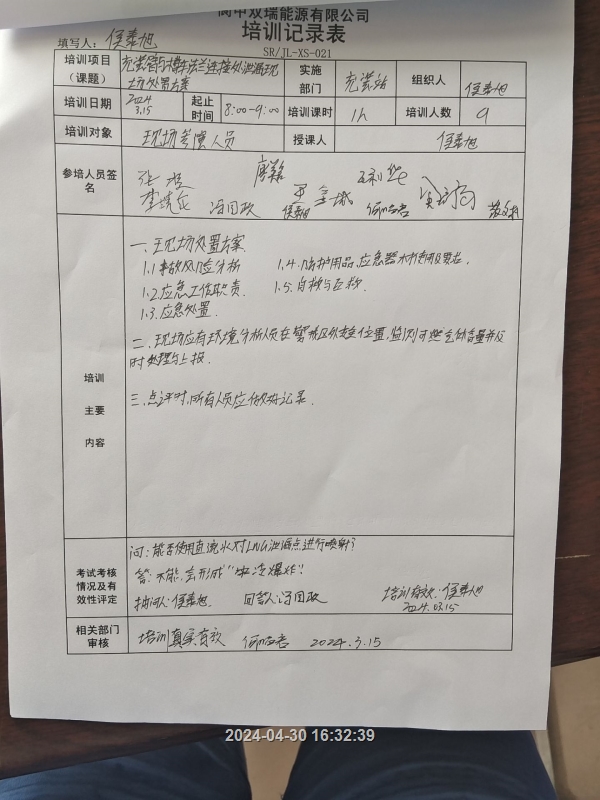 阆中双瑞能源有限公司
培训记录表
填写人:侯素旭
SR/JL-XS-021
培训项目(课题) 充装管与槽车法兰连接处泄漏现场处置方案 实施部门 充装站 组织人 侯素旭
培训日期 2024 3.15 起止时间 8:00-9:00 培训课时 1h 培训人数 9
培训对象 现场考虑人员 授课人 侯素旭
参培人员签名
冯国政
培训主要内容
一、现场处置方案
1.1 事故风险分析 1.4.防护用品、应急器材使用及要求.
1.2.应急工作职责. 1.5.自救与互救.
1.3.应急处置.
二、现场应有环境分析人员在警戒区外安全位置,监测可燃气体含量并及
时处理与上报.
三、点评时,所有人员应做好记录.
考试考核情况及有效性评定
问:能否使用直流水对LNG泄漏点进行喷射?
答:不能,会形成“冷爆炸”!
提问人:侯素旭. 回答人:冯国政 培训有效:侯素旭
2024.03.15
相关部门审核
培训真实有效 2024.3.15
2024-04-30 16:32:39